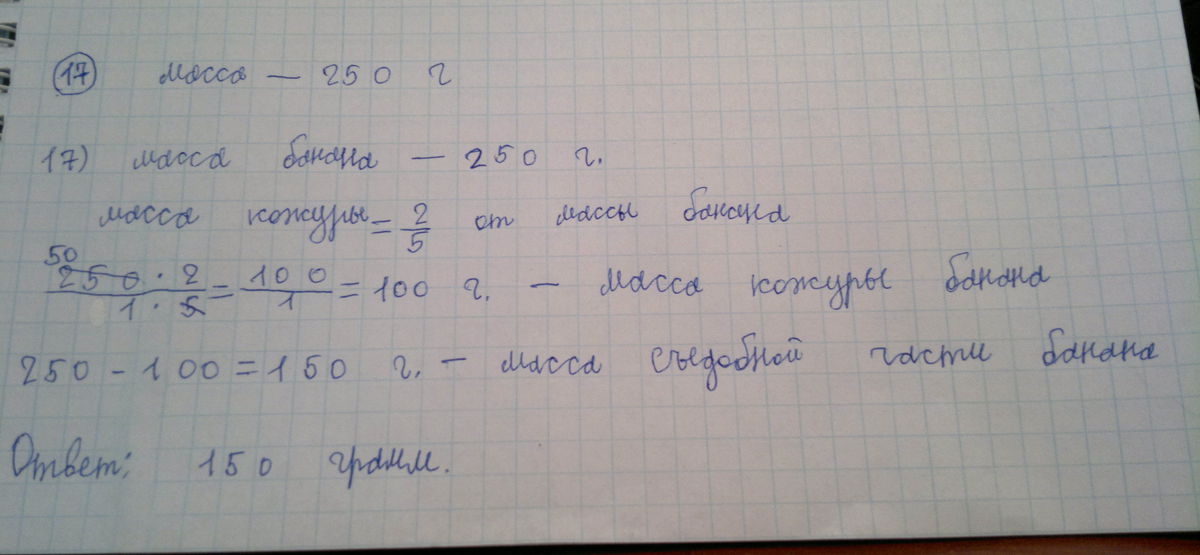 17 масса — 250 г
17) масса банана — 250 г.
масса кожуры = 2/5 от массы банана
50
250 · 2 / 1 · 5 = 100 / 1 = 100 г. — масса кожуры банана
250 - 100 = 150 г. — масса съедобной части банана
Ответ: 150 грамм.